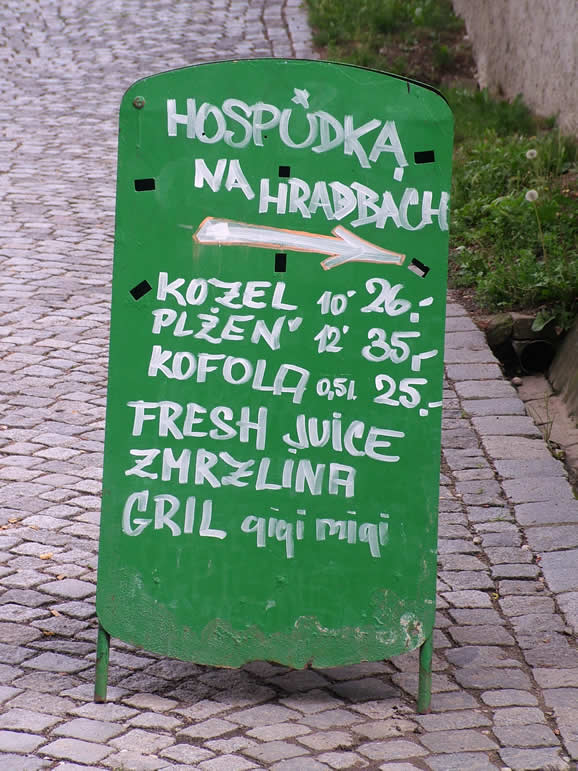 HOSPŮDKA
NA HRADBÁCH
KOZEL 10° 26.-
PLŽEŇ 12° 35.-
KOFOLA 0,5l. 25.-
FRESH JUICE
ZMRZLINA
GRIL qiqi miqi